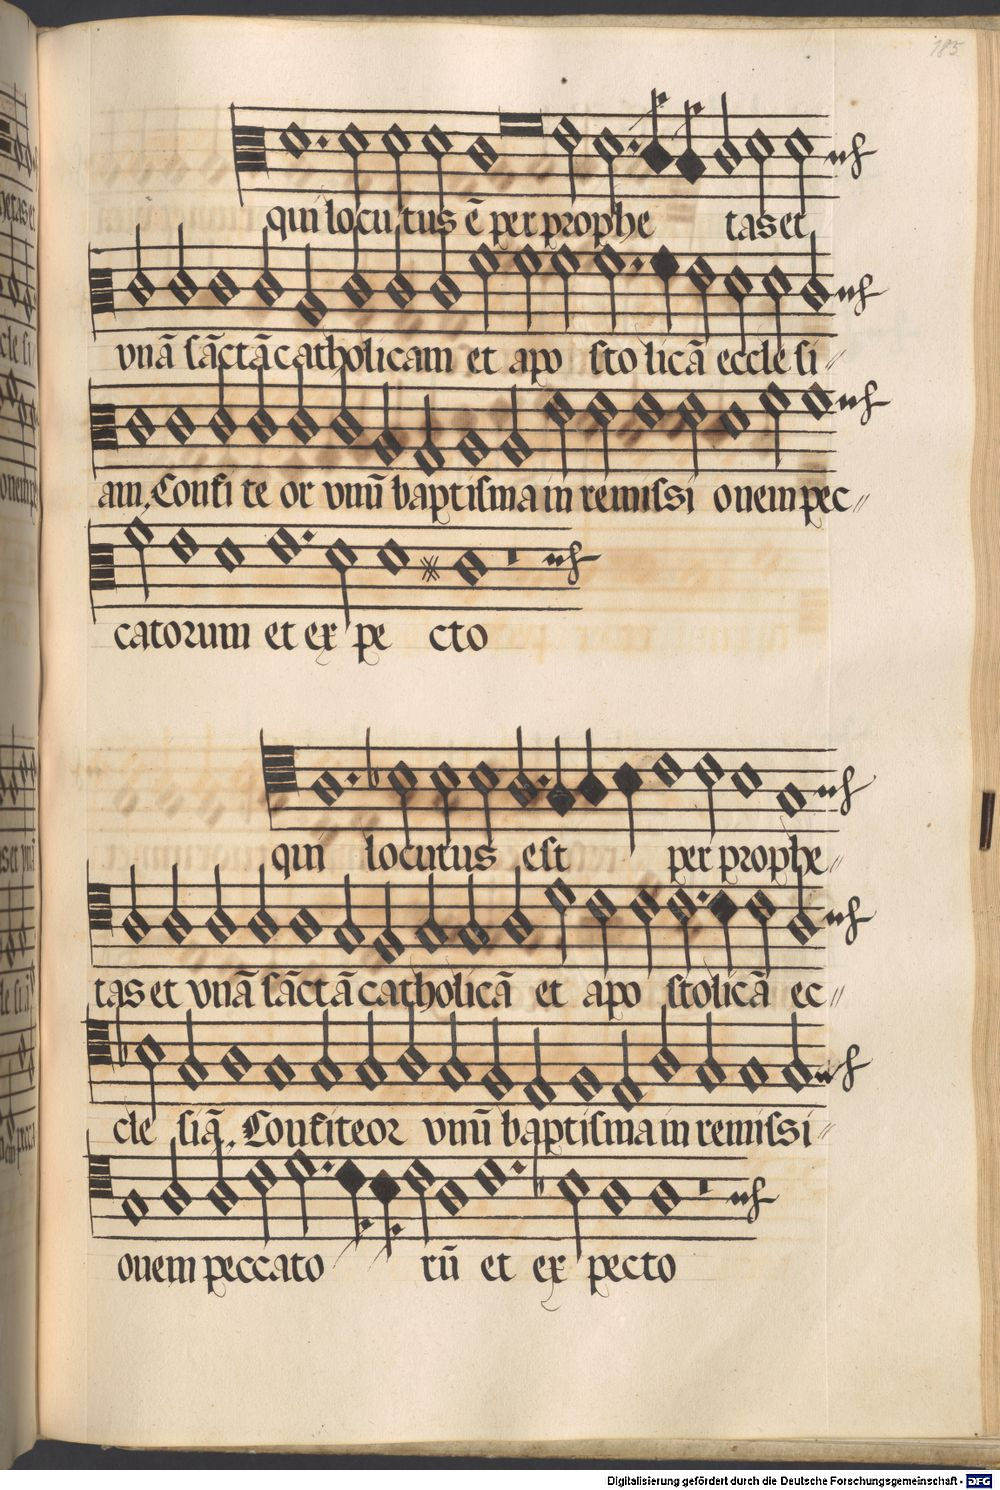 185
qui locutus ē per prophe tas et
vnā sāctā catholicam et apo sto licā eccle si〃
am, Confi te or vnū baptisma in remissi onem pec〃
catorum et ex pe cto
qui locutus est per prophe〃
tas et vnā sāctā catholicā et apo stolicā ec〃
cle siā, Confiteor vnū baptisma in remissi〃
onem peccato rū et ex pecto
Digitalisierung gefördert durch die Deutsche Forschungsgemeinschaft - DFG